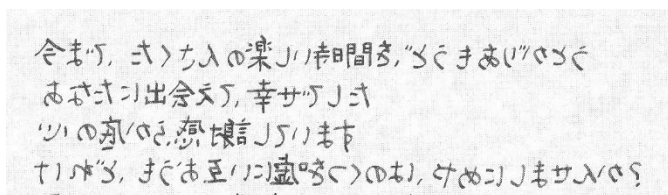 今まで、たくさんの楽しい時間を、どうもありがとう
あなたに出会えて、幸せでした
心の底から、感謝しています
けれど、もうお互いに嘘をつくのは、やめにしませんか?